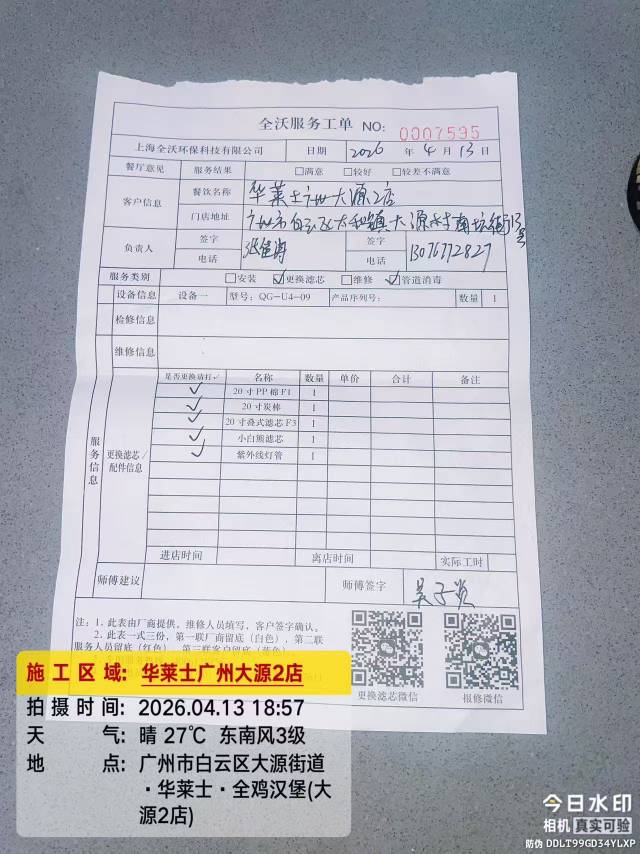 全沃服务工单 NO: 0007595
上海全沃环保科技有限公司 日期 2026 年 4 月 13 日
餐厅意见 服务结果 □满意 □较好 □较差不满意
客户信息 餐饮名称 华莱士广州大源2店
门店地址 广州市白云区太和镇大源村南坑街13号
负责人 签字 签字
电话 电话 13076772827
服务类别 □安装 ☑更换滤芯 □维修 ☑管道消毒
设备信息 设备一 型号: QG-U4-09 产品序列号: 数量 1
检修信息
维修信息
服务信息
更换滤芯/配件信息
是否更换请打✓ 名称 数量 单价 合计 备注
✓ 20寸PP棉F1 1
✓ 20寸炭棒 1
✓ 20寸叠式滤芯F3 1
✓ 小白熊滤芯 1
✓ 紫外线灯管 1
进店时间 离店时间 实际工时
师傅建议 师傅签字
注: 1. 此表由厂商提供, 维修人员填写, 客户签字确认。
2. 此表一式三份, 第一联厂商留底(白色), 第二联
服务人员留底(红色), 第三联客户留底(蓝色)
更换滤芯微信 报修微信
施工区域: 华莱士广州大源2店
拍摄时间: 2026.04.13 18:57
天 气: 晴 27℃ 东南风3级
地 点: 广州市白云区大源街道
·华莱士·全鸡汉堡(大
源2店)
今日水印
相机 真实可验
防伪 DDLT99GD34YLXP